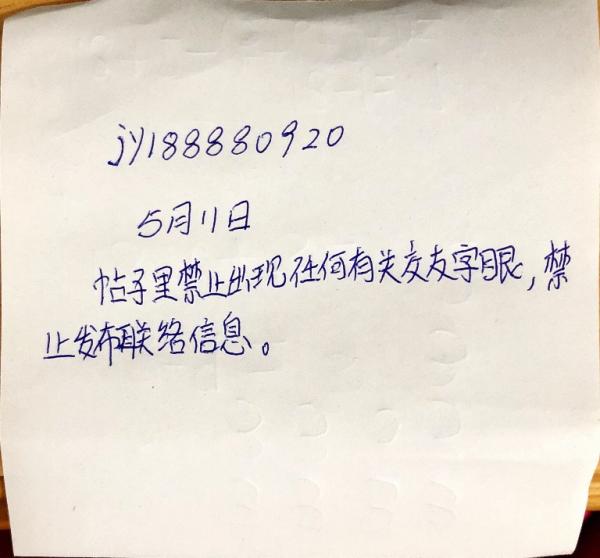 jy188880920
5月11日
帖子里禁止出现任何有关交友字眼,禁
止发布联络信息。